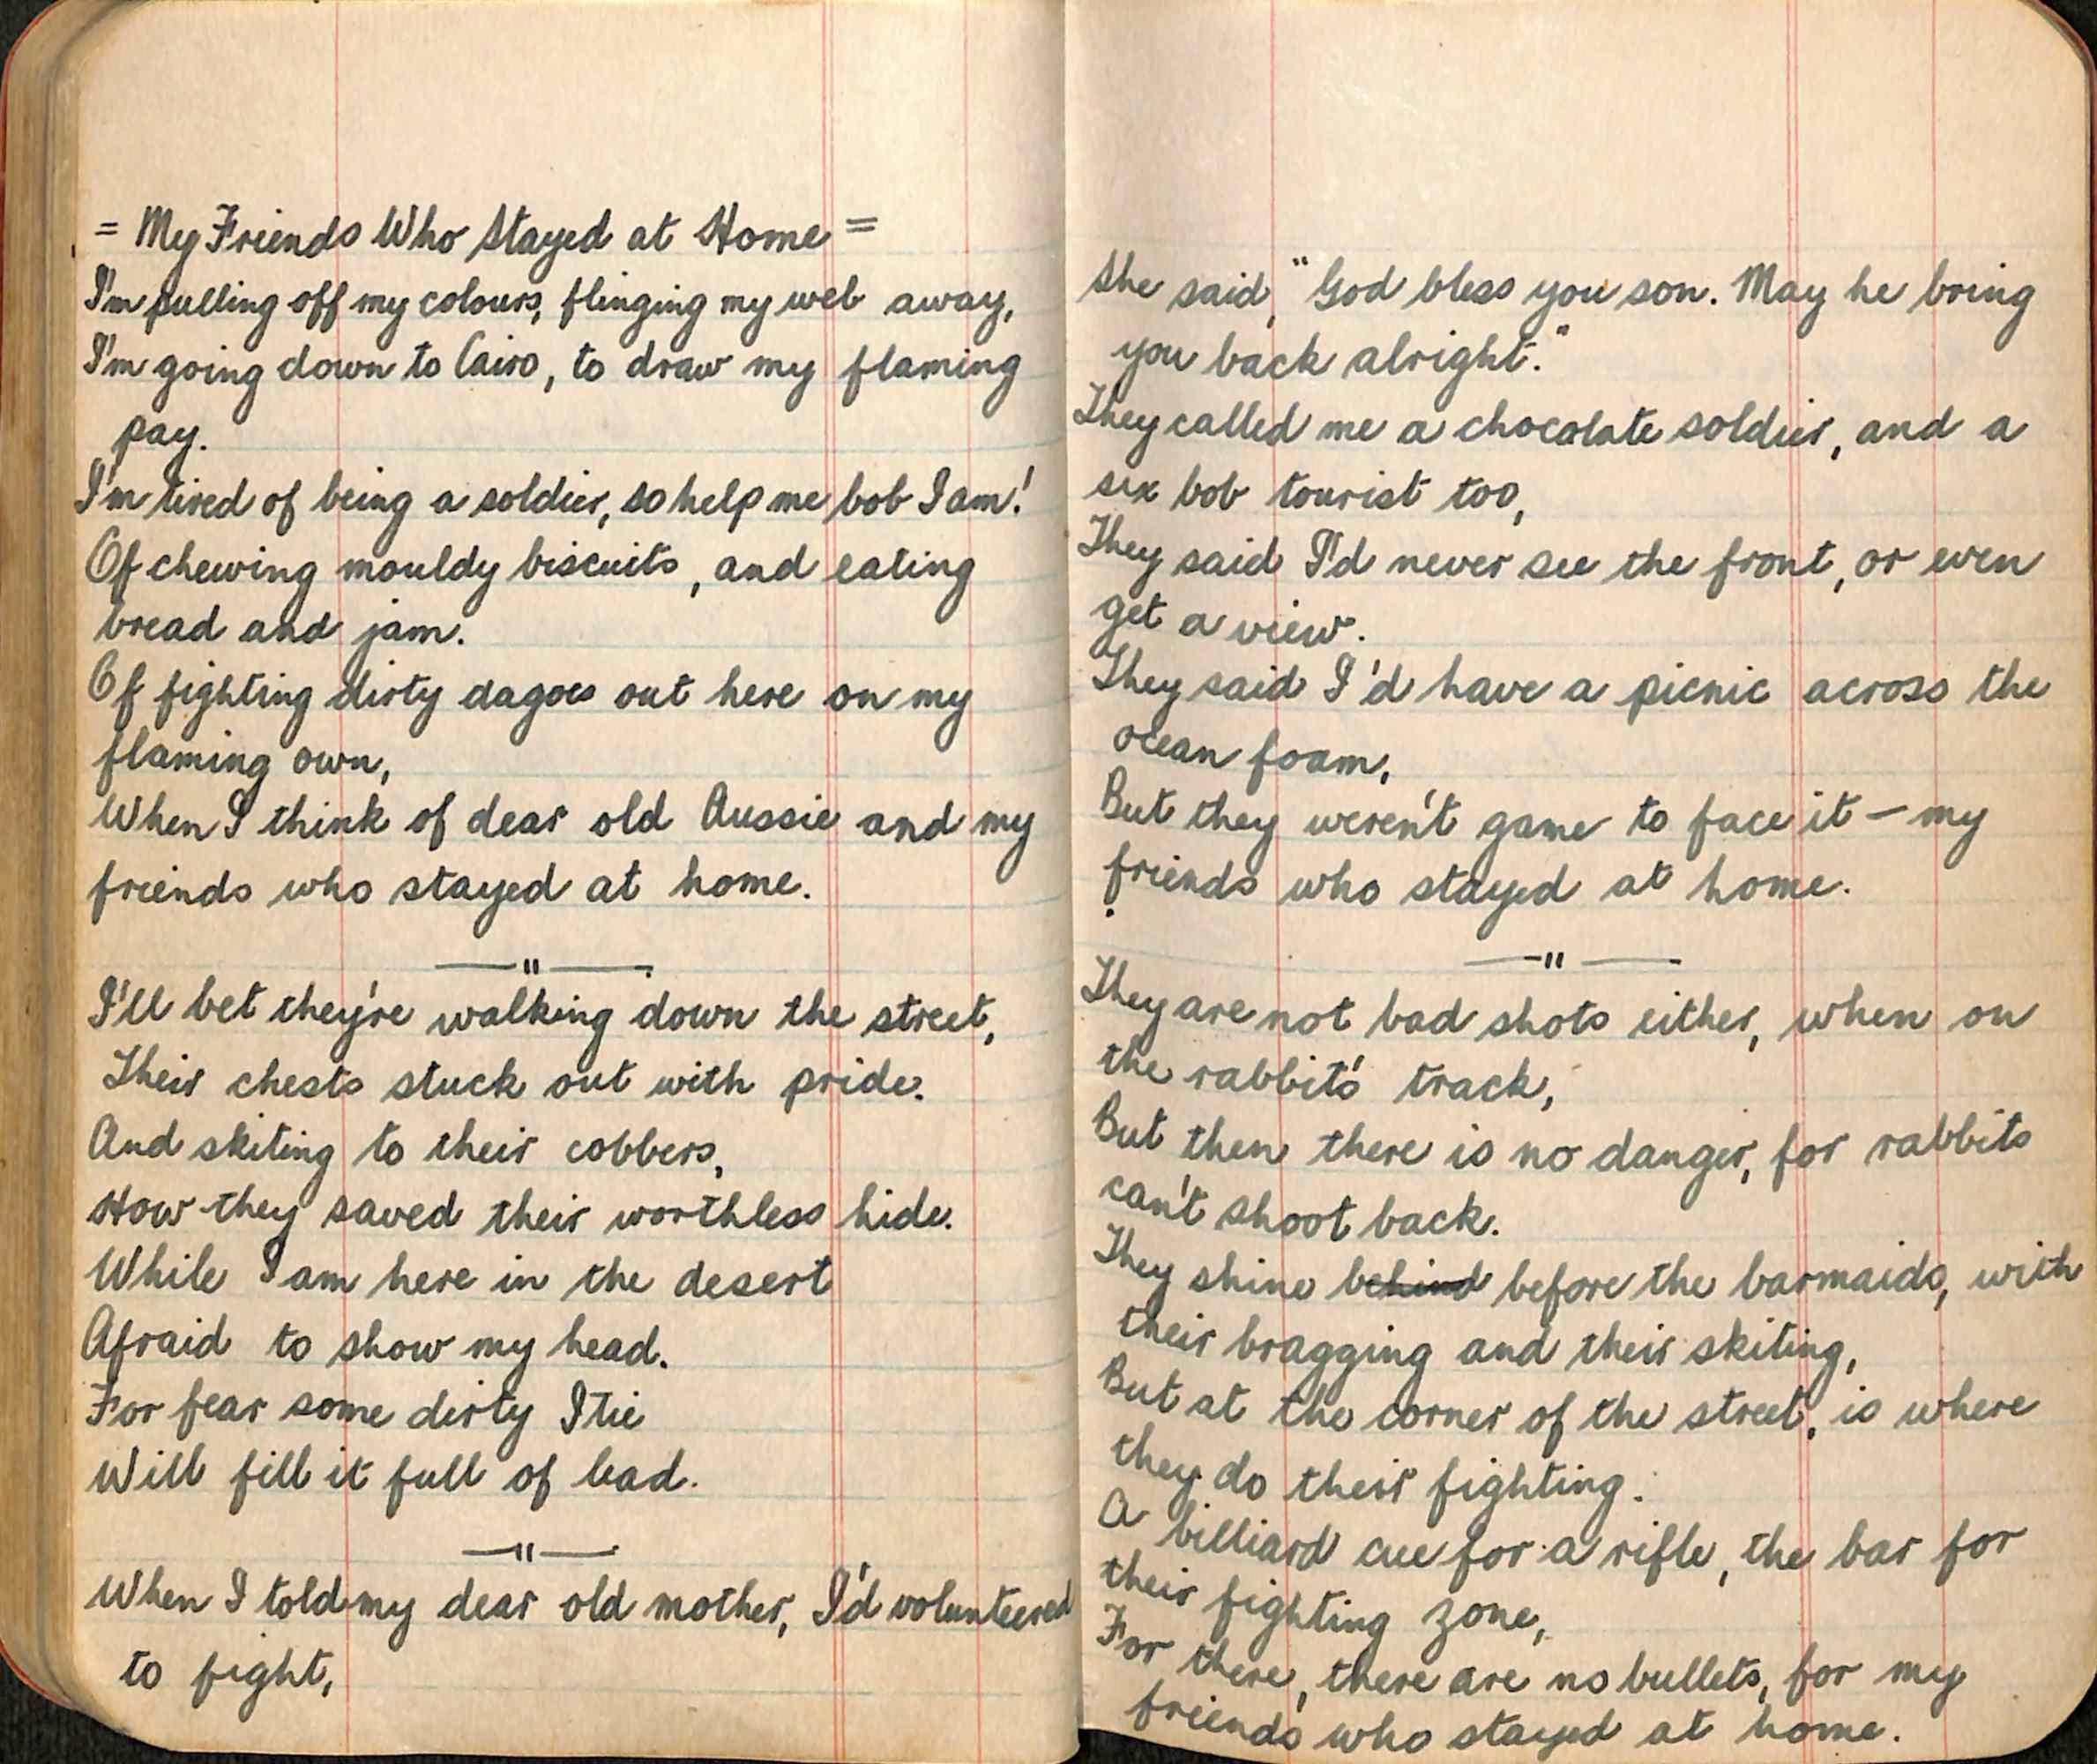 = My Friends Who Stayed at Home =
I'm pulling off my colours, flinging my web away,
I'm going down to Cairo, to draw my flaming
pay.
I'm tired of being a soldier, so help me bob I am!
Of chewing mouldy biscuits, and eating
bread and jam.
Of fighting dirty dagoes out here on my
flaming own,
When I think of dear old Aussie and my
friends who stayed at home.
— " —
I'll bet they're walking down the street,
Their chests stuck out with pride.
And skiting to their cobbers,
How they saved their worthless hide.
While I am here in the desert
Afraid to show my head.
For fear some dirty Itie
Will fill it full of lead.
— " —
When I told my dear old mother, I'd volunteered
to fight,
She said, "God bless you son. May he bring
you back alright."
They called me a chocolate soldier, and a
six bob tourist too,
They said I'd never see the front, or even
get a view.
They said I'd have a picnic across the
ocean foam,
But they weren't game to face it — my
friends who stayed at home.
— " —
They are not bad shots either, when on
the rabbits' track,
But then there is no danger, for rabbits
can't shoot back.
They shine behind before the barmaids, with
their bragging and their skiting,
But at the corner of the street, is where
they do their fighting.
A billiard cue for a rifle, the bar for
their fighting zone,
For there, there are no bullets, for my
friends who stayed at home.